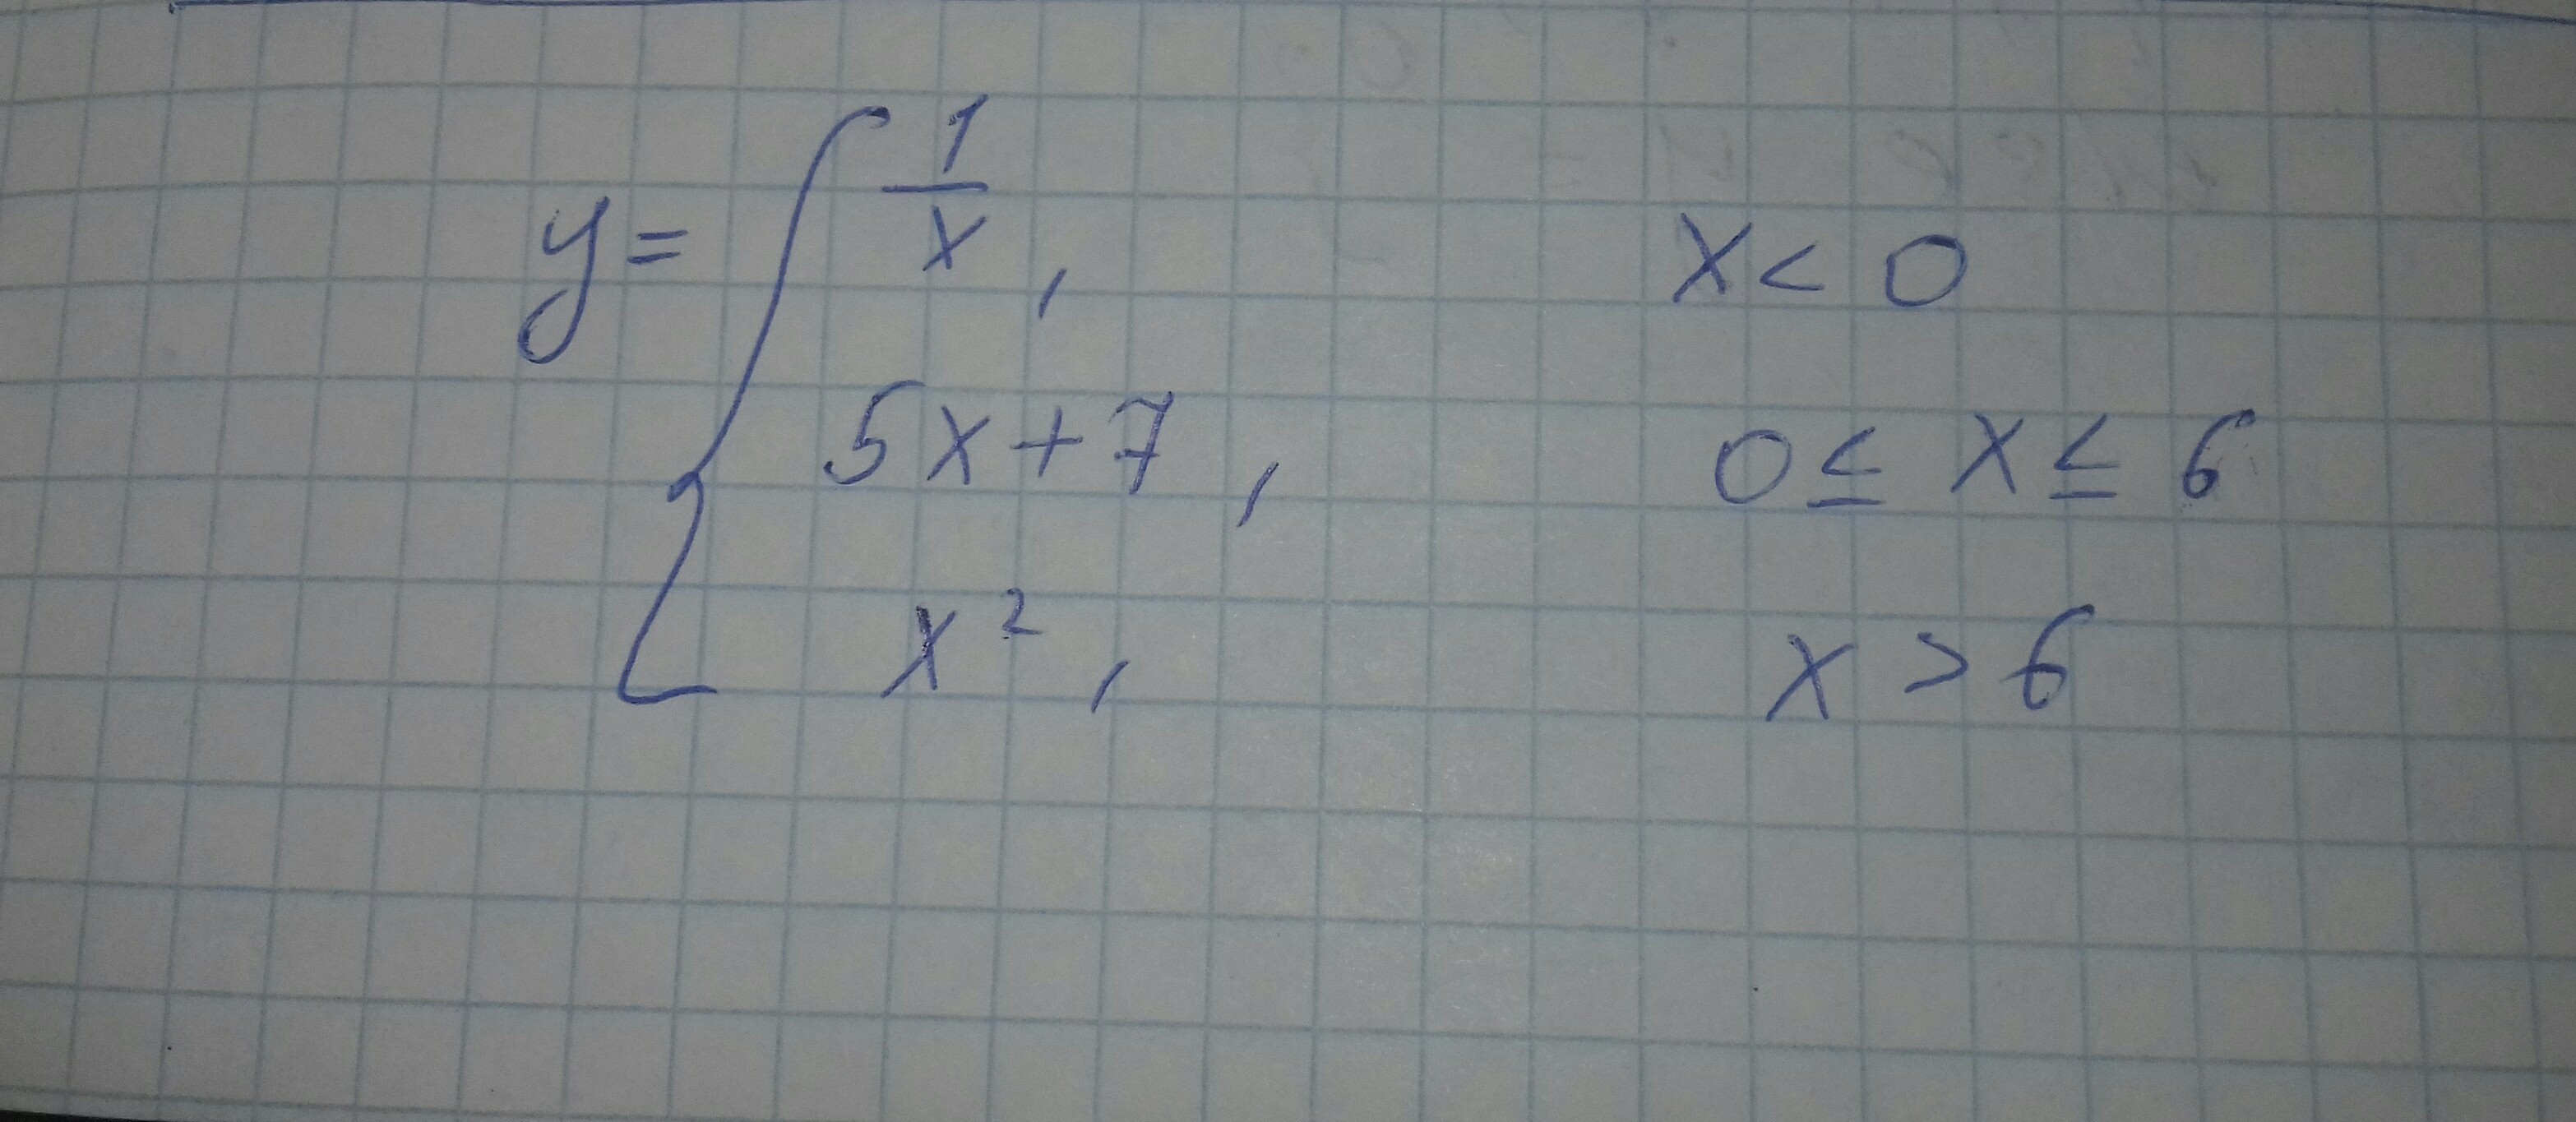 y = { 1/x , x < 0
5x + 7 , 0 ≤ x ≤ 6
x² , x > 6